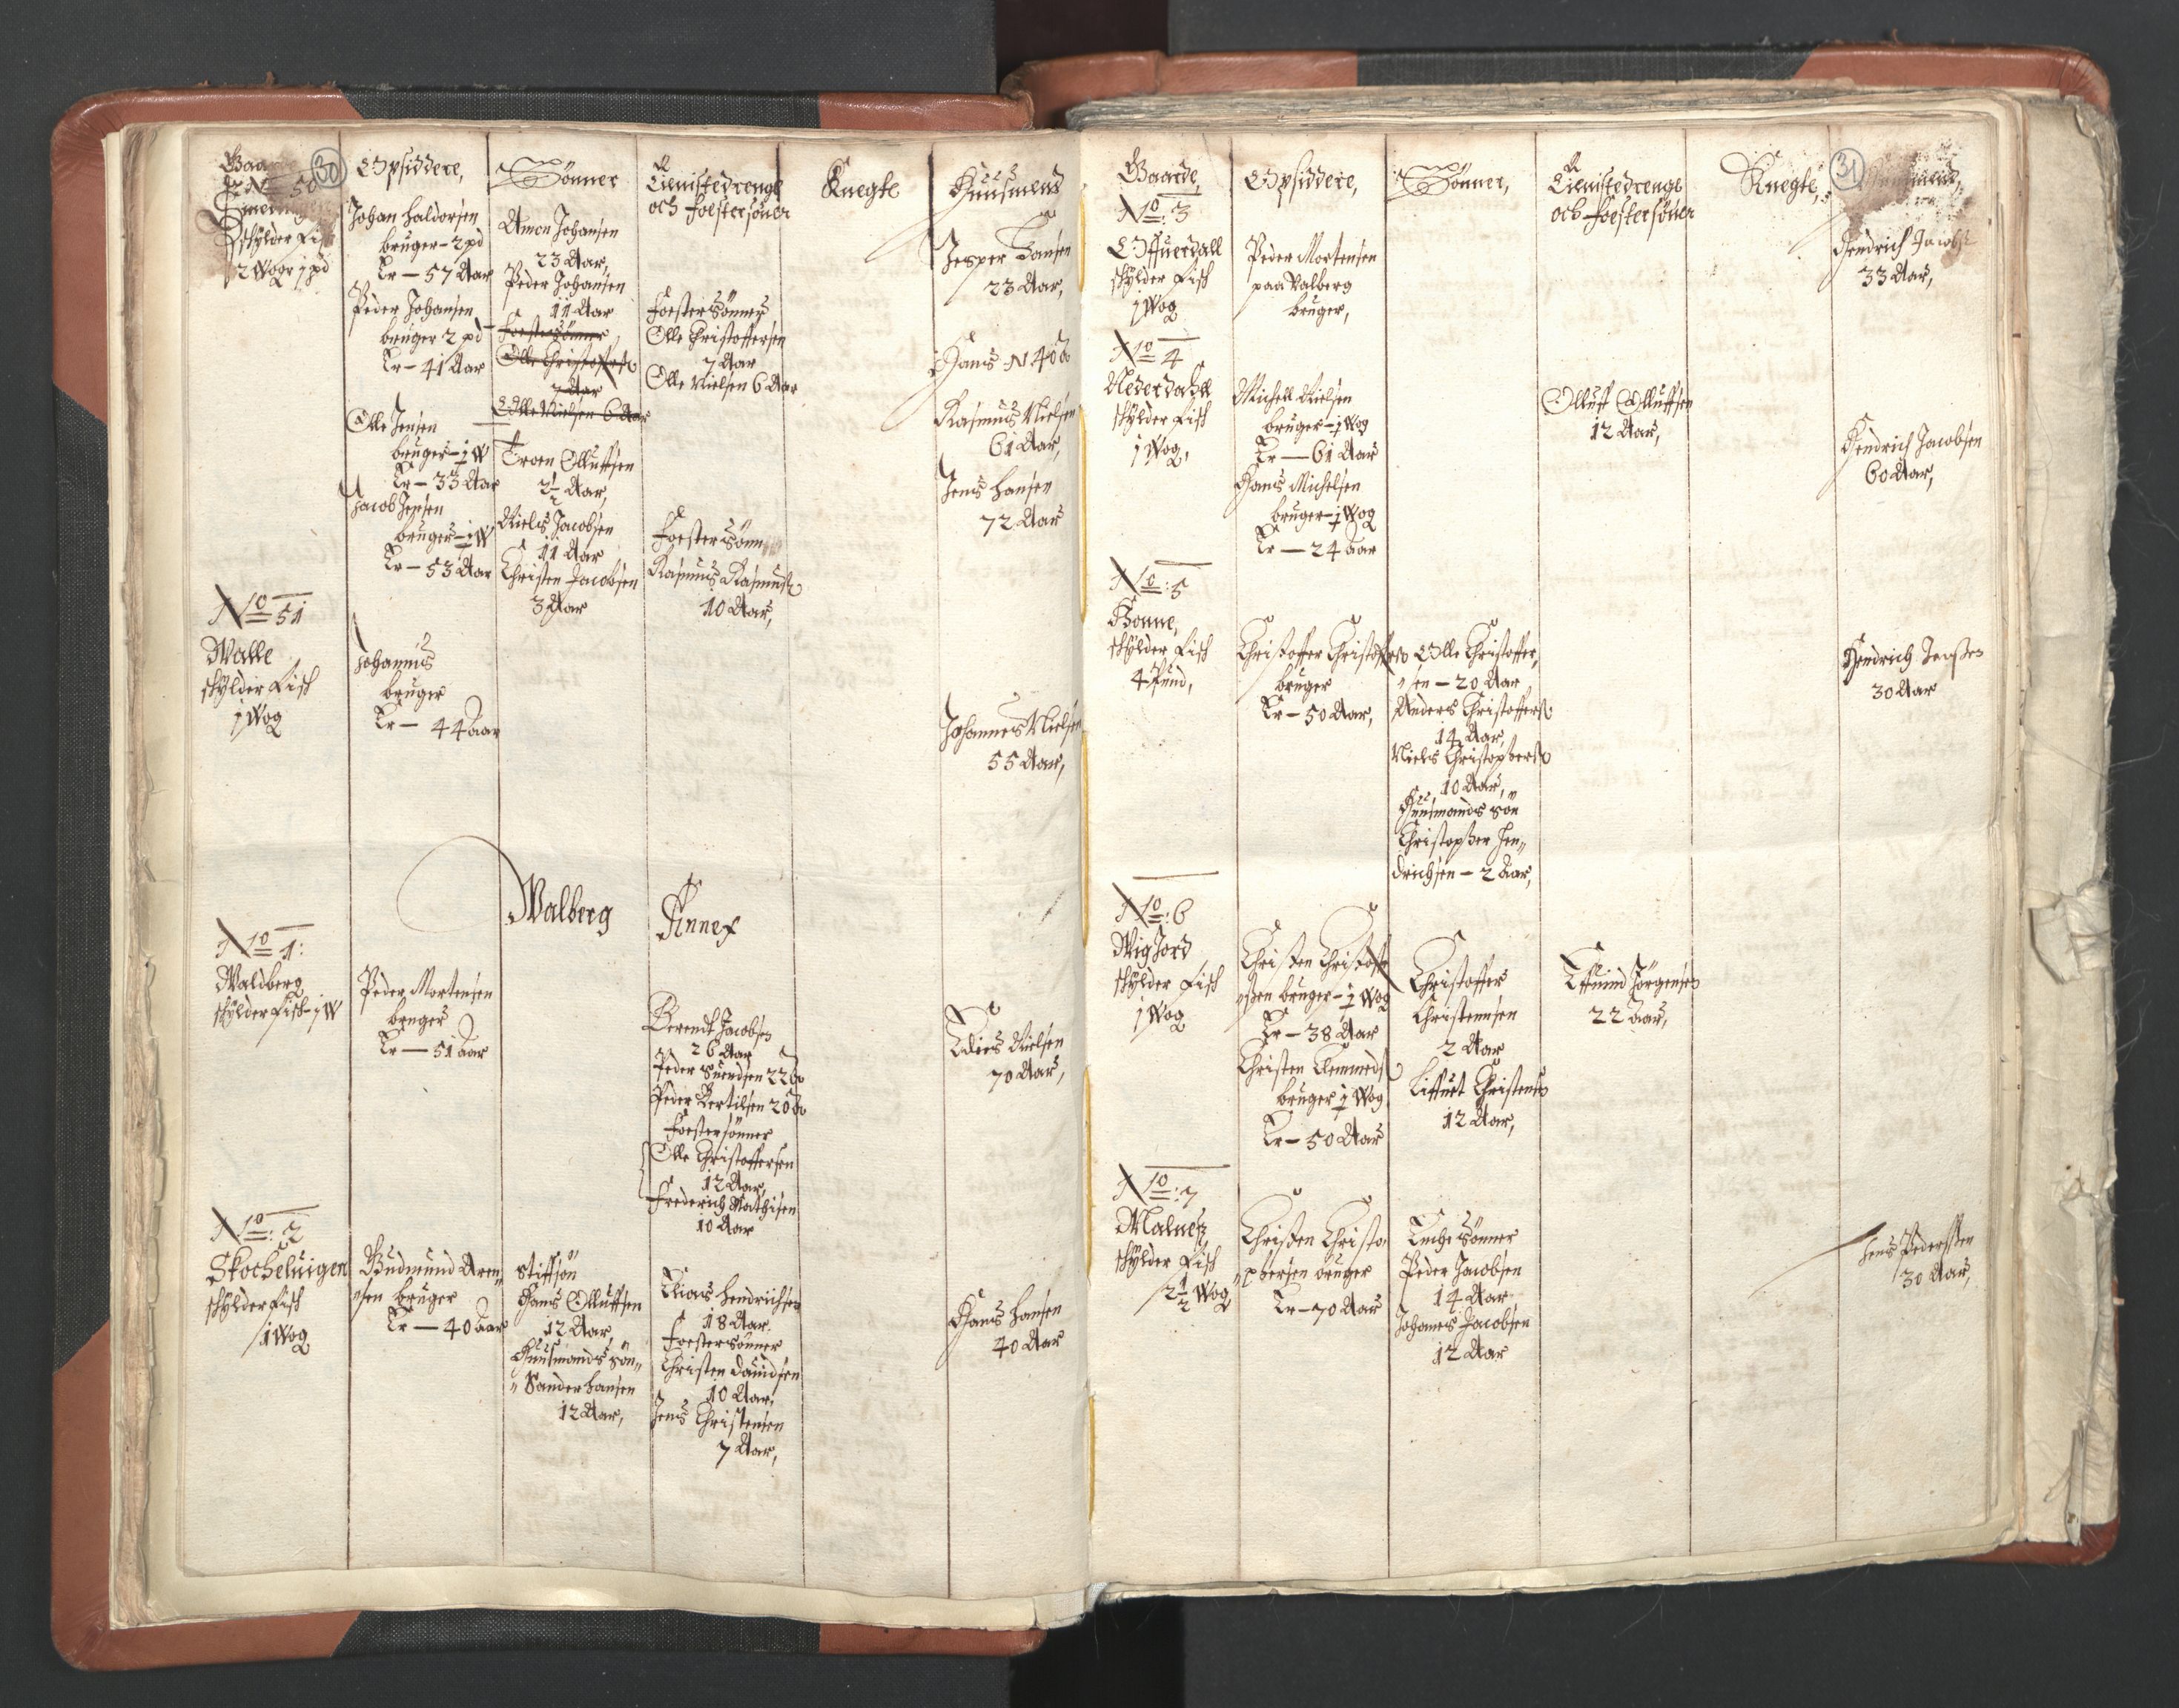 30
Gaarde
No 50
skylder Fisk
2 Wogr 1 pd
Opsiddere,
Johan Haldorsen
bruger - 2 pd
Er - 57 Aar
Peder Johansen
bruger 2 pd
Er - 41 Aar
Olle Jensen
bruger - 1 W
Er - 33 Aar
Jacob Jensen
bruger - 1 W
Er - 53 Aar
Sønner
Amon Johansen
23 Aar,
Peder Johansen
11 Aar
Foestersønner,
Olle Christoffersen
7 Aar
Olle Nielsen 6 Aar
Troen Olluffsen
2½ Aar,
Niels Jacobsen
11 Aar
Christen Jacobsen
3 Aar
Tienistedrenge
och Foestersøner
Foestersønner
Olle Christoffersen
7 Aar
Olle Nielsen 6 Aar
Foestersønn
Rasmus Rasmus
10 Aar,
Knegte
Huusmend
Jesper Hansen
23 Aar,
Hans N 40 Aar
Rasmus Nielsen
61 Aar,
Jens Hansen
72 Aar
No 51
Walle
skylder Fisk
1 Wog
Johannis
bruger
Er - 44 Aar
Johannes Nielsen
55 Aar,
Walberg Annex
No 1:
Waldberg
skylder Fisk - 1 W
Peder Mortensen
bruger
Er - 51 Aar
Berendt Jacobsen
26 Aar
Peder Suendsen 22 Aar
Peder Bertilsen 20 Aar
Foestersønner
Olle Christoffersen
12 Aar,
Frederich Mathisen
10 Aar
Nielsen
70 Aar,
No: 2
Skocheluigen
skylder Fisk
1 Wog
Gudmund Aren„
„sen bruger
Er - 40 Aar
Stiffsøn
Hans Olluffsen
12 Aar,
Huusmands søn„
„Sander Hansen
12 Aar,
Elias Hendrichsen
18 Aar
Foestersønner
Christen Dauidsen
10 Aar,
Jens Christensen
7 Aar,
Hans Hansen
40 Aar
31
Gaarde,
No: 3
Offuerdall
skylder Fisk
1 Wog
Opsiddere,
Peder Mortensen
paa Valberg
bruger,
Sønner,
Tienistedrenge
och Foestersøner
Knegte,
Huusmend,
Hendrich Jacobs
33 Aar,
No 4
Nederdahll
skylder Fisk
1 Wog,
Michell Nielsen
bruger - ½ Wog
Er - 61 Aar
Hans Michelsen
bruger - ½ Wog
Er - 24 Aar
Olluff Olluffsen
12 Aar,
Hendrich Jacobsen
60 Aar,
No: 5
Bonne,
skylder Fisk
4 Pund,
Christoffer Christoffersen
bruger
Er - 50 Aar,
Olle Christoffer„
„sen - 20 Aar
Anders Christoffersen
14 Aar
Niels Christophersen
10 Aar,
Huusmands søn
Christopher Hen„
drichsen - 2 Aar,
Hendrich Jenssen
30 Aar
No: 6
WigJord
skylder Fisk
1 Wog
Christen Christoffer
„sen bruger - ½ Wog
Er - 38 Aar
Christen Clemmeds
bruger ½ Wog
Er - 50 Aar
Christoffer
Christennsen
2 Aar
Christens
12 Aar,
Jørgensen
22 Aar,
No: 7
Malnes,
skylder Fisk
2½ Wog
Christen Christo„
„phersen bruger
Er - 70 Aar
Enche Sønner
Peder Jacobsen
14 Aar
Johannes Jacobsen
12 Aar
Jens Pederssen
30 Aar,